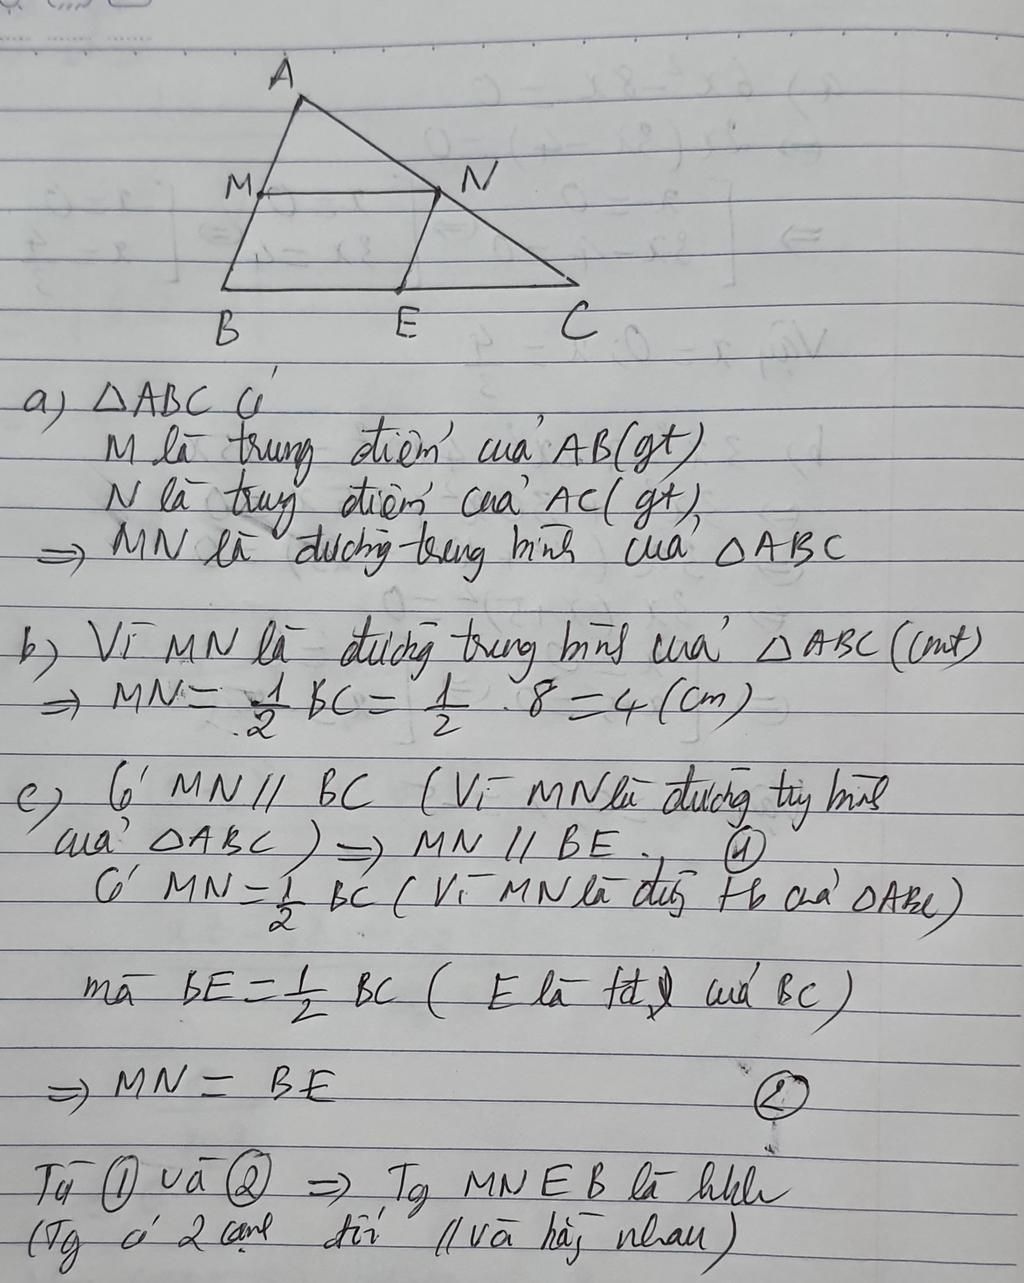 A
M
N
B
E
C
a) △ABC có
M là trung điểm của AB (gt)
N là trung điểm của AC (gt)
⇒ MN là đường trung bình của △ABC
b) Vì MN là đường trung bình của △ABC (cmt)
⇒ MN = 1/2 BC = 1/2 . 8 = 4 (cm)
c) Có MN // BC (Vì MN là đường tr bình
của △ABC) ⇒ MN // BE. ①
Có MN = 1/2 BC (Vì MN là đường tb của △ABC)
mà BE = 1/2 BC (E là tđ của BC)
⇒ MN = BE ②
Từ ① và ② ⇒ Tg MNEB là hbh
(Tg có 2 cạnh đối // và bằng nhau)